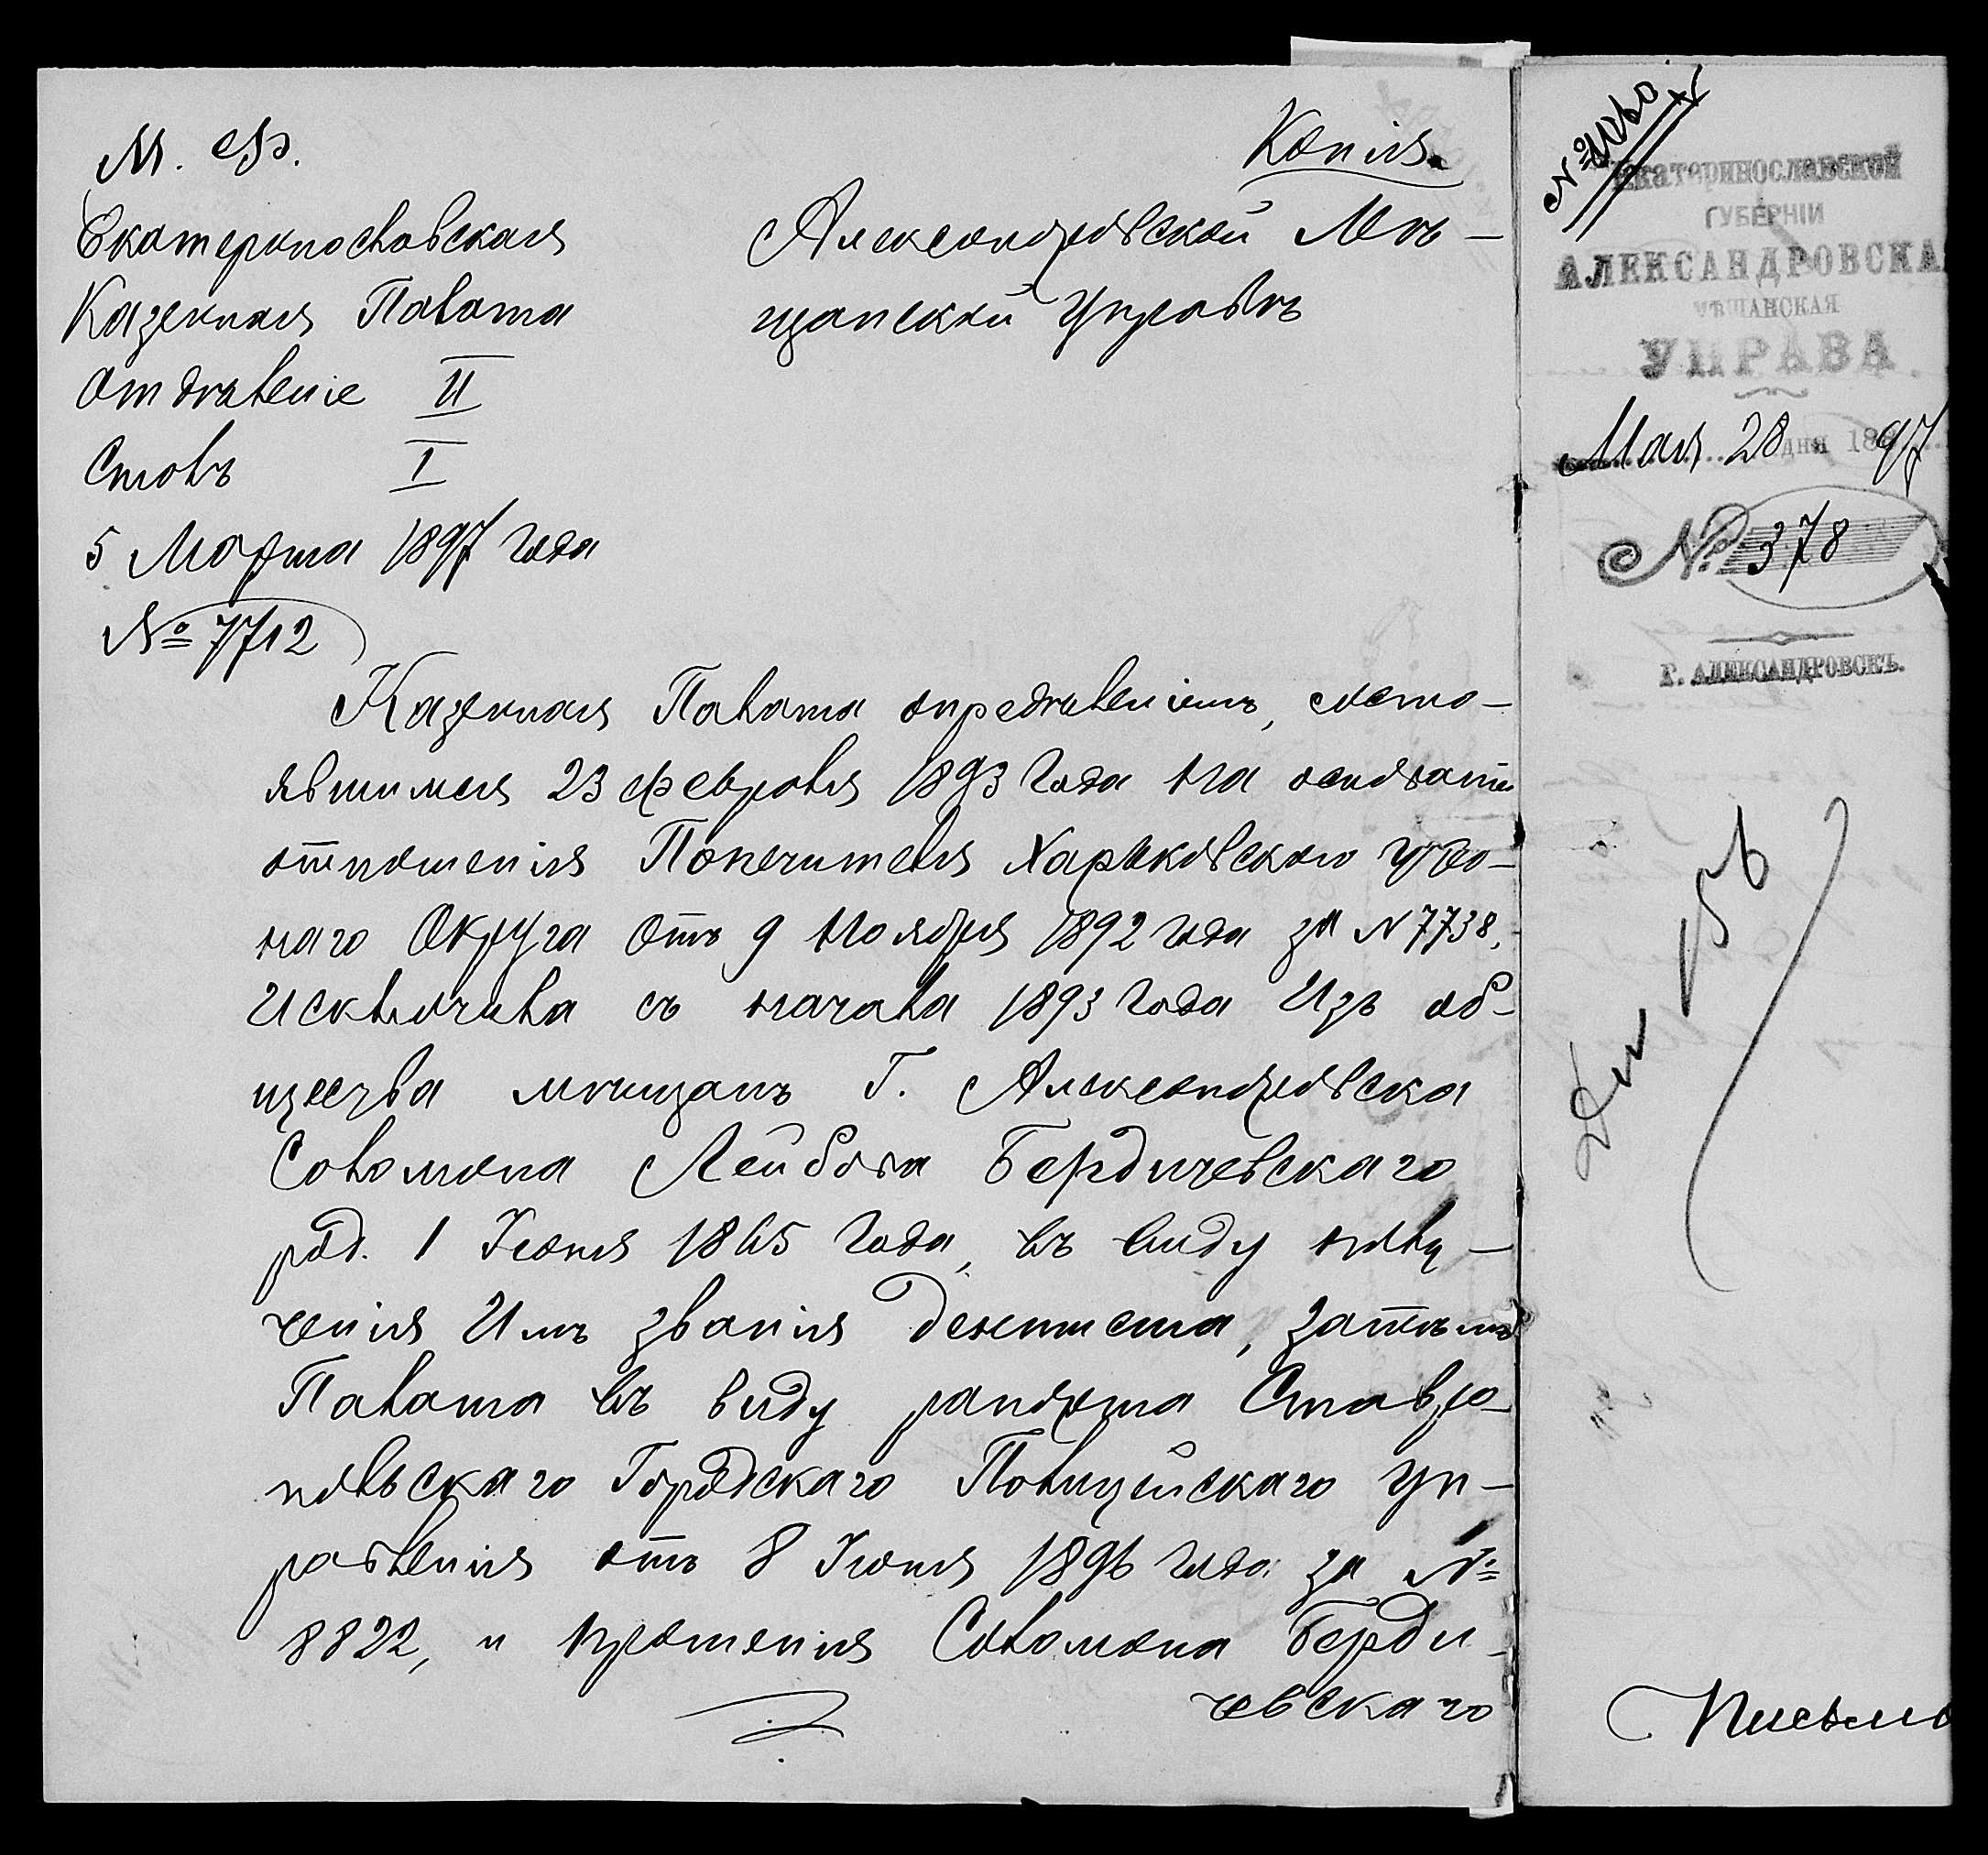 М. Ф.
Копія.
Екатеринославская
Казенная Палата
Отдѣленіе II
Столъ I
5 Марта 1897 года
№ 7712
Александровской Мѣ-
щанской Управѣ
Казенная Палата опредѣленіемъ, состо-
явшимся 23 февраля 1893 года на основаніи
отношенія Попечителя Харьковскаго учеб-
наго Округа отъ 9 Ноября 1892 года за N 7738,
Исключила съ начала 1893 года Изъ об-
щества мѣщанъ Г. Александровска
Соломона Лейбова Бердичевскаго
род. 1 Іюня 1865 года, въ виду полу-
ченія Имъ званія дентиста, затѣмъ
Палата въ виду рапорта Ставро-
польскаго Городскаго Полицейскаго Уп-
равленія отъ 8 Іюня 1896 года за №
8822, и прошенія Соломона Берди-
чевскаго
Екатеринославской
ГУБЕРНІИ
АЛЕКСАНДРОВСКА
МѢЩАНСКАЯ
УПРАВА.
Мая 28 дня 188 97
№ 378
Г. АЛЕКСАНДРОВСКЪ.